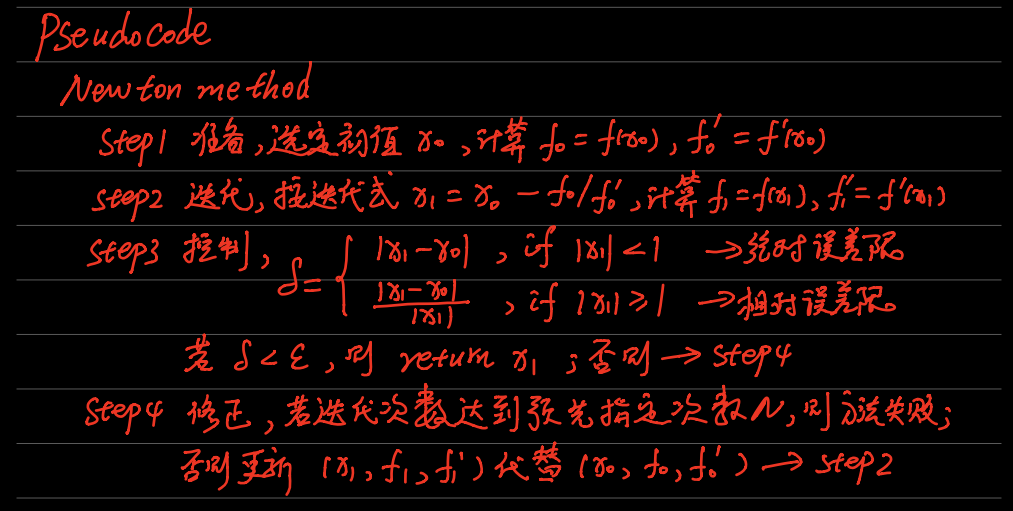 Pseudocode
Newton method
Step1 准备,选定初值 x₀ ,计算 f₀ = f(x₀) , f₀′ = f′(x₀)
step2 迭代,按迭代式 x₁ = x₀ − f₀/f₀′ ,计算 f₁ = f(x₁), f₁′ = f′(x₁)
step3 控制, δ = { |x₁−x₀| , if |x₁| < 1 → 绝对误差限。
|x₁−x₀| / |x₁| , if |x₁| ≥ 1 → 相对误差限。
若 δ < ε ,则 return x₁ ;否则 → step4
step4 修正,若迭代次数达到预先指定次数N,则方法失败;
否则更新 (x₁, f₁, f₁′) 代替 (x₀, f₀, f₀′) → step2